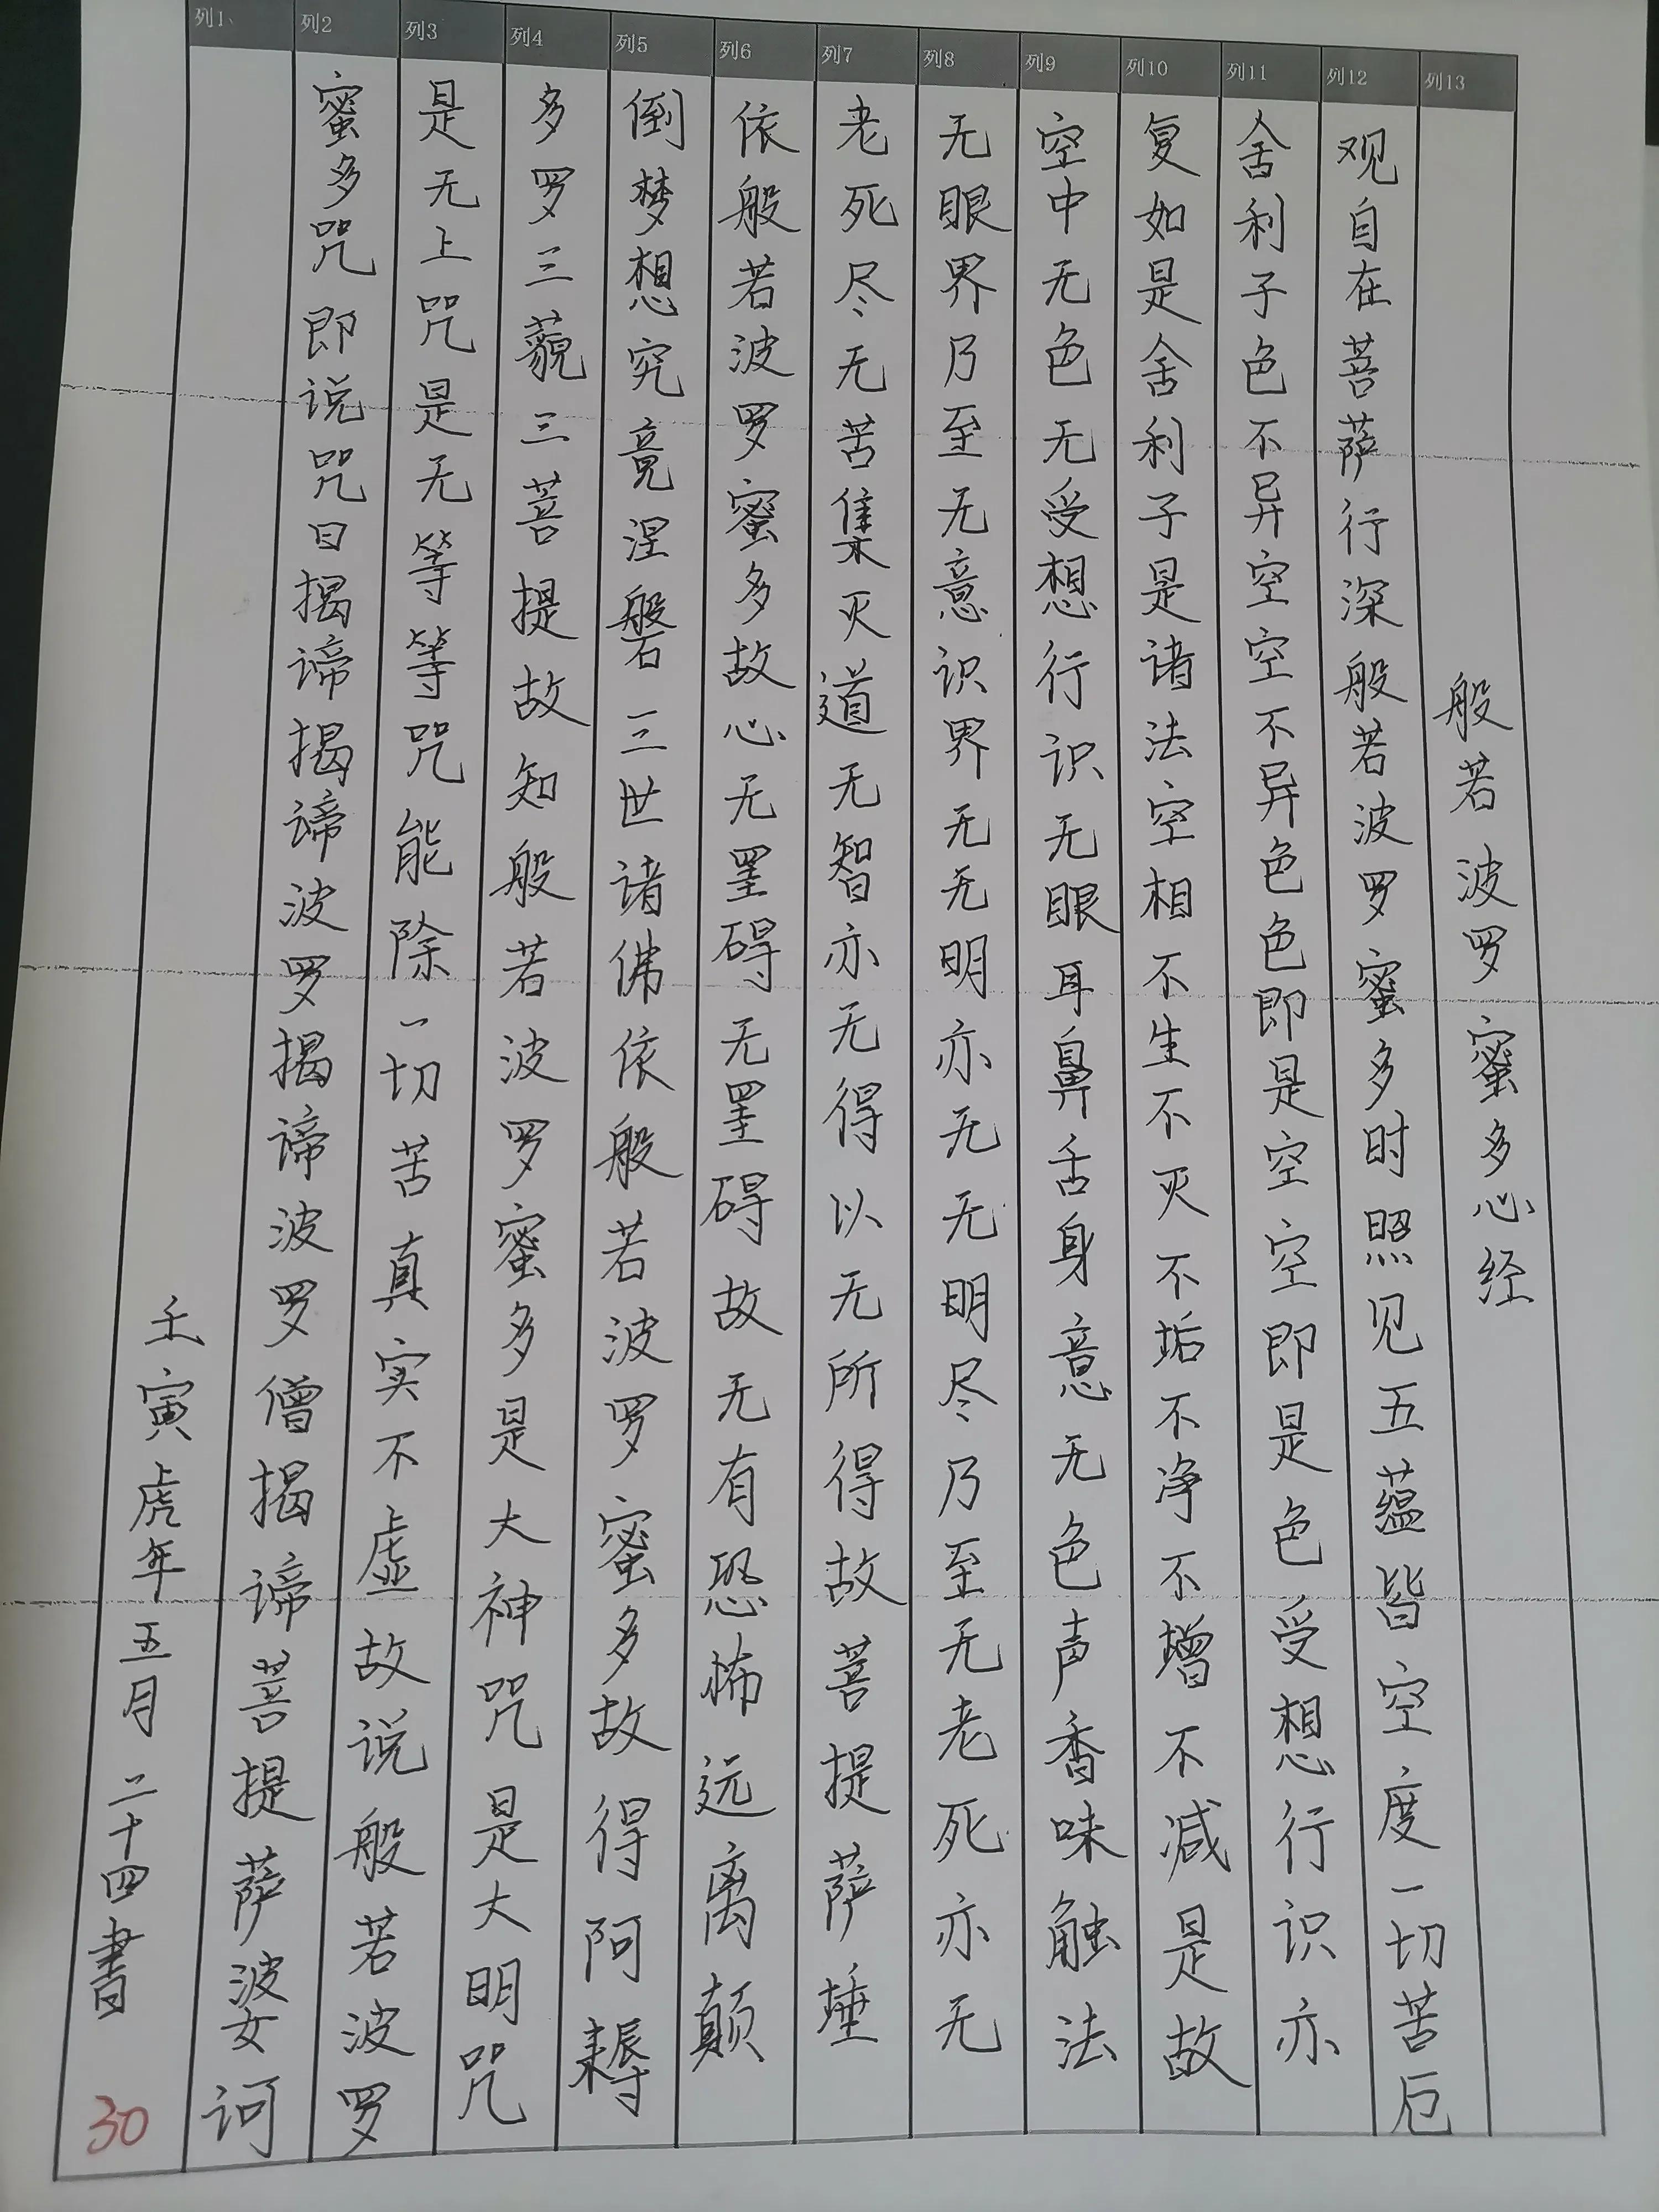 列1 列2 列3 列4 列5 列6 列7 列8 列9 列10 列11 列12 列13
般若波罗蜜多心经
观自在菩萨行深般若波罗蜜多时照见五蕴皆空度一切苦厄
舍利子色不异空空不异色色即是空空即是色受想行识亦
复如是舍利子是诸法空相不生不灭不垢不净不增不减是故
空中无色无受想行识无眼耳鼻舌身意无色声香味触法
无眼界乃至无意识界无无明亦无无明尽乃至无老死亦无
老死尽无苦集灭道无智亦无得以无所得故菩提萨埵
依般若波罗蜜多故心无罣碍无罣碍故无有恐怖远离颠
倒梦想究竟涅磐三世诸佛依般若波罗蜜多故得阿耨
多罗三藐三菩提故知般若波罗蜜多是大神咒是大明咒
是无上咒是无等等咒能除一切苦真实不虚故说般若波罗
蜜多咒即说咒曰揭谛揭谛波罗揭谛波罗僧揭谛菩提萨婆诃
壬寅虎年五月二十四書
30